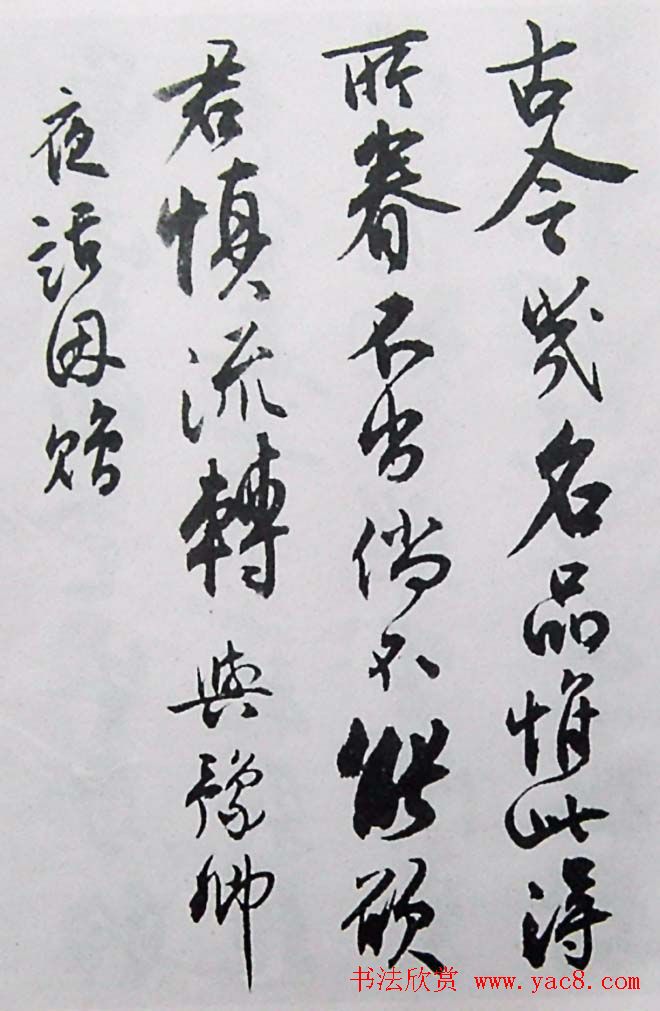 古今幾名品惟此得
所眷不當倘不能欲
君慎流轉 與豫卿
夜話因贈
书法欣赏 www.yac8.com